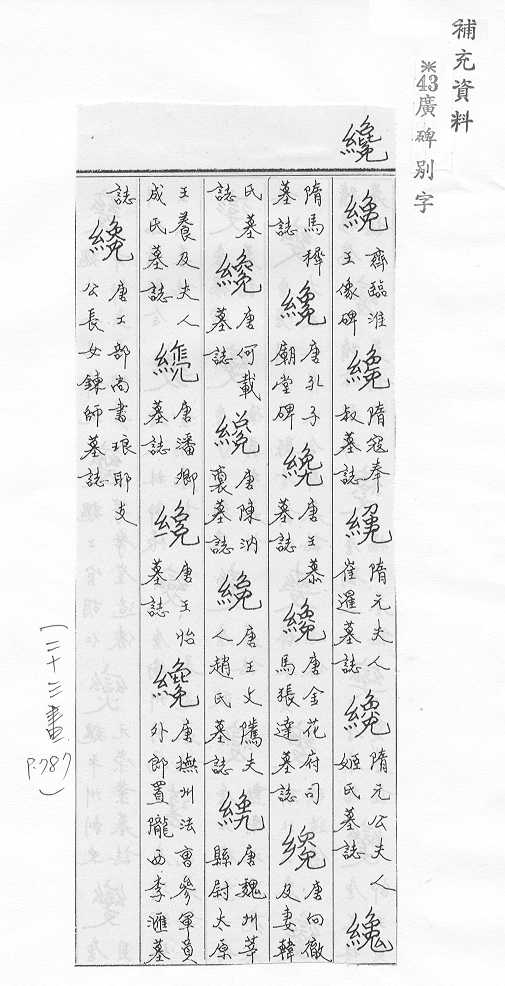 補充資料
※43廣碑別字
纔
纔 齊臨淮王像碑 纔 隋寇奉叔墓誌 纔 隋元夫人崔暹墓誌 纔 隋元公夫人姬氏墓誌 纔
隋馬穉墓誌 纔 唐孔子廟堂碑 纔 唐王慕墓誌 纔 唐金花府司馬張達墓誌 纔 唐向徹及妻韓
氏墓誌 纔 唐何載墓誌 纔 唐陳汭墓誌 纔 唐王文騰夫人趙氏墓誌 纔 唐魏州莘縣尉太原
王養及夫人成氏墓誌 纔 唐潘卿墓誌 纔 唐王怡墓誌 纔 唐撫州法曹參軍員外郎置隴西李滙墓
誌 纔 唐工部尚書琅耶支公長女鍊師墓誌
(二十三畫 P.787)